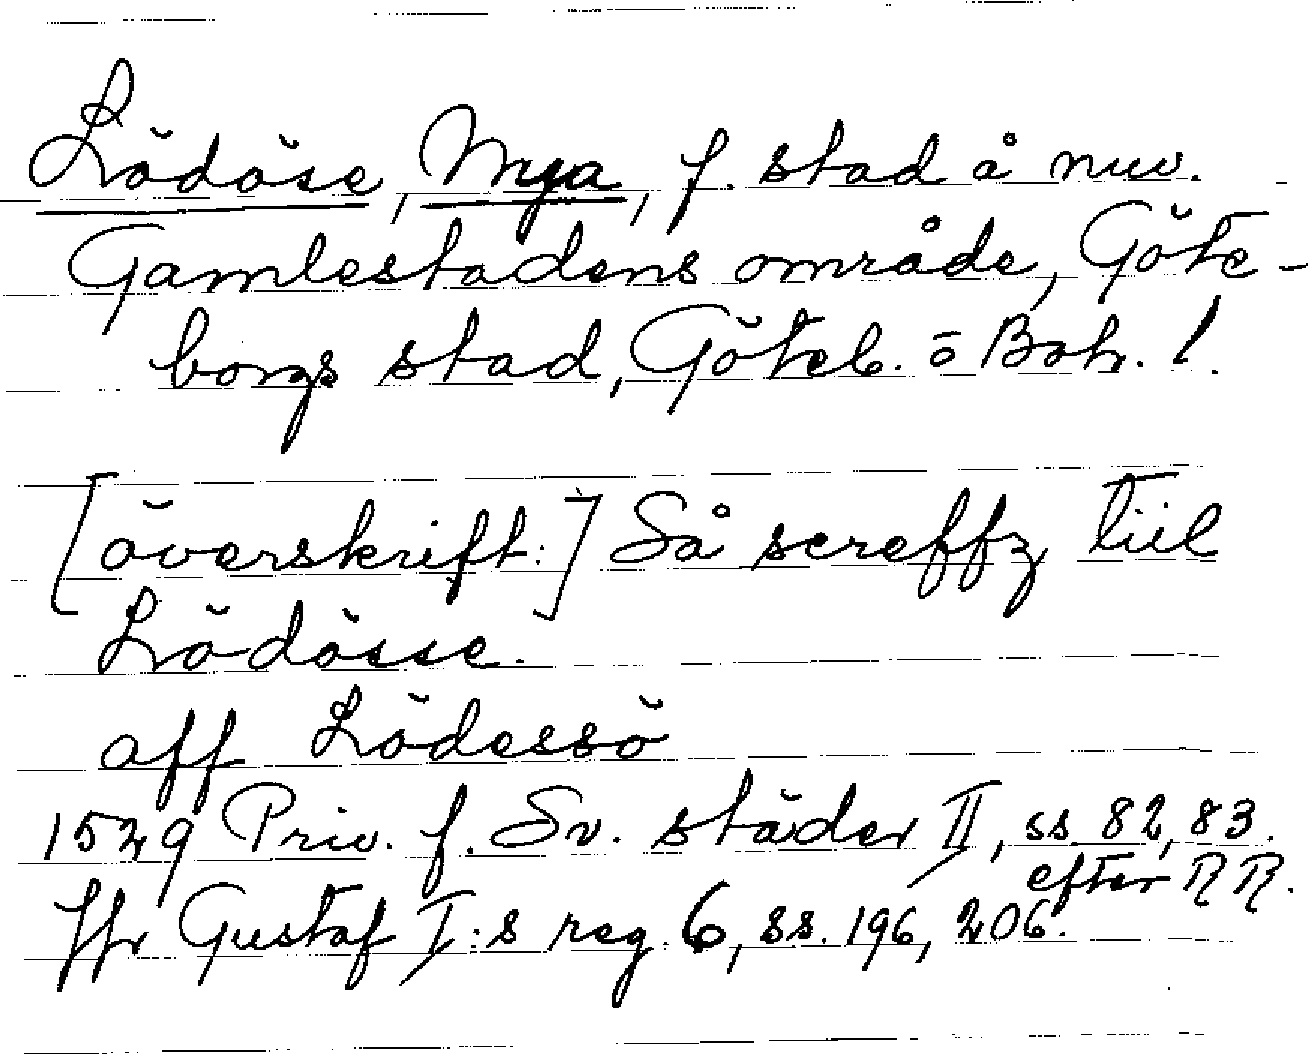 Lödöse, Nya, f. stad å nuv.
Gamlestadens område, Göte-
borgs stad, Göteb. o Boh. l.
[överskrift:] Så screffz tiil
Lödösse.
aff Lödessö
1529 Priv. f. Sv. städer II, ss 82, 83.
efter RR.
Jfr Gustaf I:s reg. 6, ss. 196, 206.